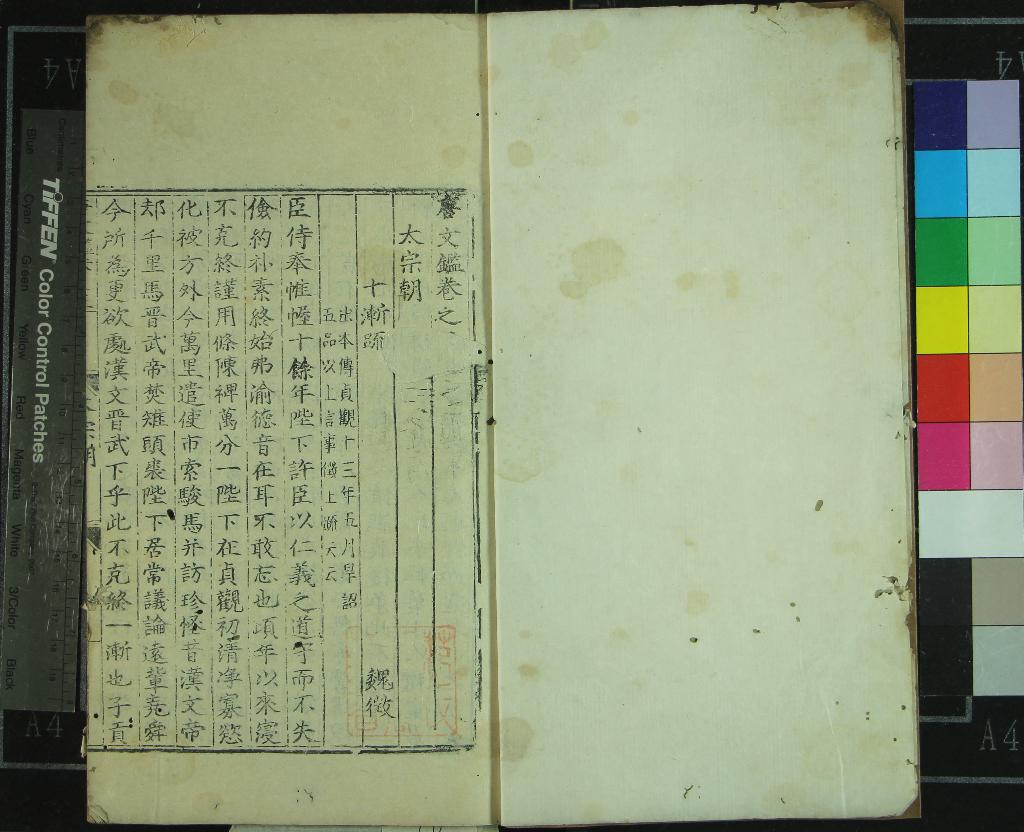 唐文鑑卷之
太宗朝
十漸疏 魏徵
出本傳貞觀十三年五月旱詔
五品以上言事徵上疏云云
臣侍奉帷幄十餘年陛下許臣以仁義之道守而不失
儉約朴素終始弗渝德音在耳不敢忘也頃年以來寖
不克終謹用條陳裨萬分一陛下在貞觀初清凈寡慾
化被方外今萬里遣使市索駿馬并訪珍怪昔漢文帝
却千里馬晉武帝焚雉頭裘陛下居常議論遠輩堯舜
今所爲更欲處漢文晉武下乎此不克終一漸也子貢
TIFFEN Color Control Patches
Blue
Cyan
Green
Yellow
Red
Magenta
White
3/Color
Black
A4
A4
A4
A4